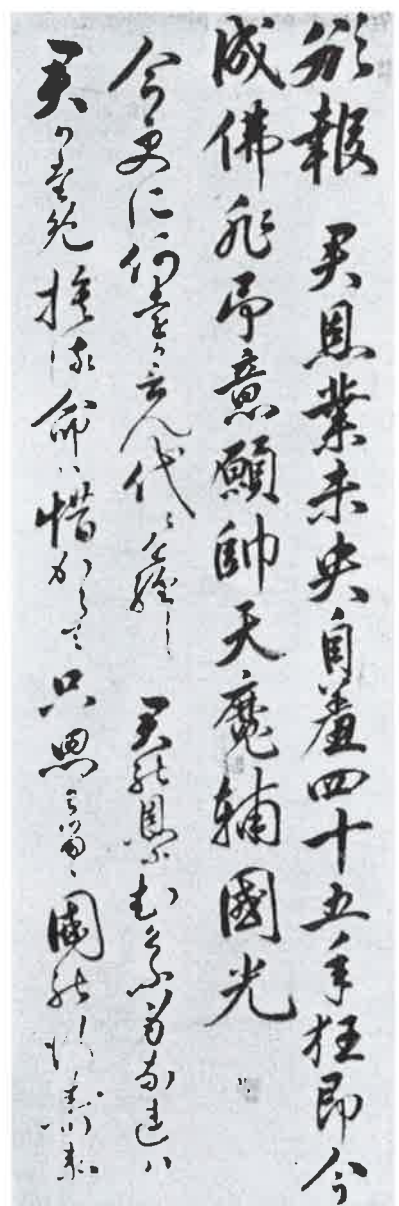 欲報 君恩業未央自羞四十五年狂即今
成佛非予意願帥天魔輔國光
今更に何をか言ん代々を経し 君の恩にむくふ身なれハ
君か為免捨る命ハ惜からて只思はるゝ國の行